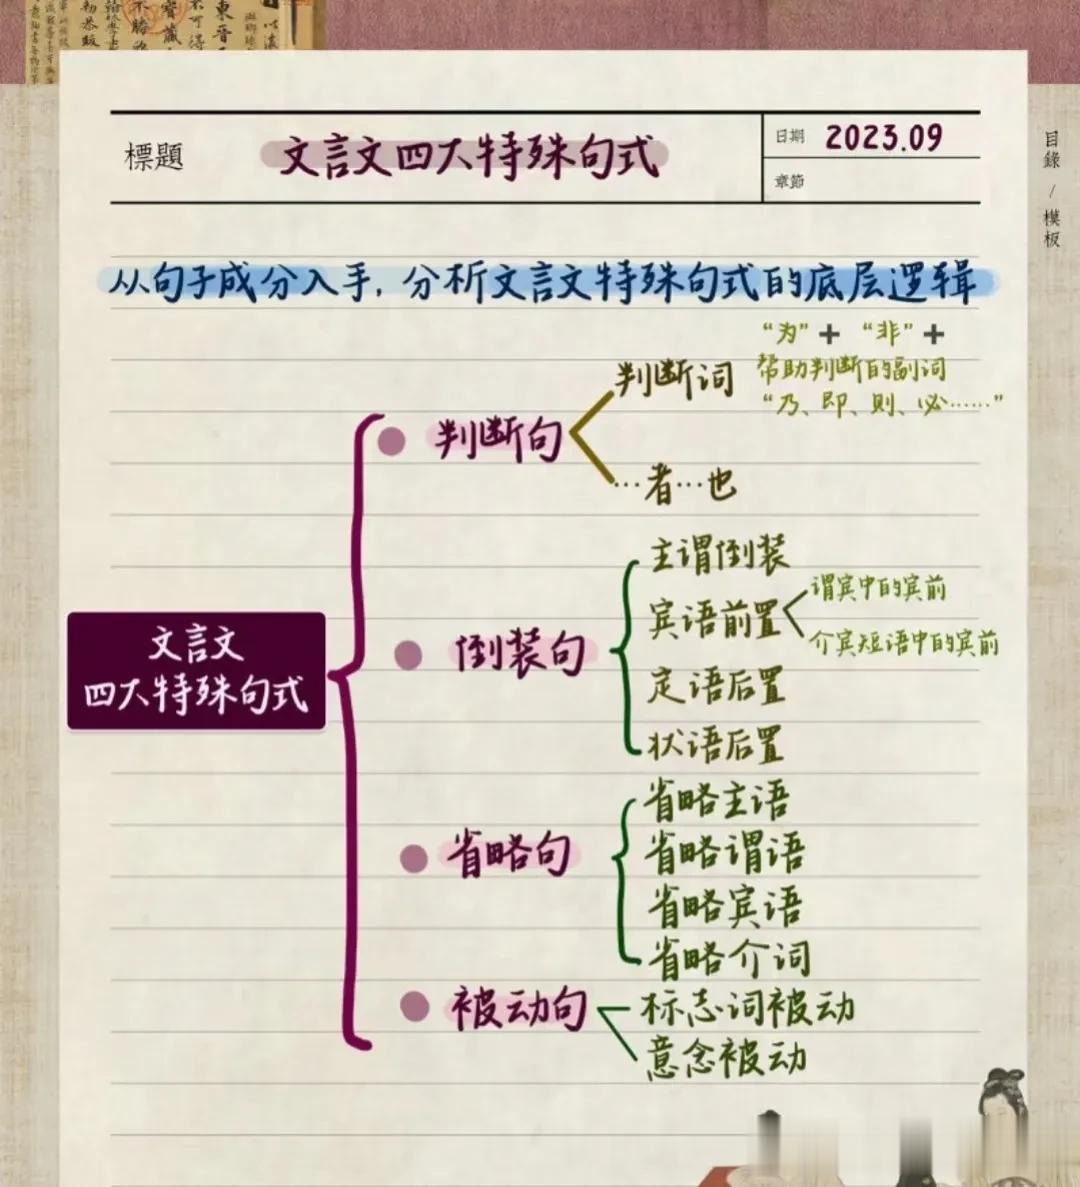 標題
文言文四大特殊句式
日期 2023.09
章節
目錄 / 模板
从句子成分入手, 分析文言文特殊句式的底层逻辑
文言文
四大特殊句式
判断句
判断词
“为”+ “非”+
帮助判断的副词
“乃、即、则、必……”
…者…也
倒装句
主谓倒装
宾语前置
谓宾中的宾前
介宾短语中的宾前
定语后置
状语后置
省略句
省略主语
省略谓语
省略宾语
省略介词
被动句
标志词被动
意念被动